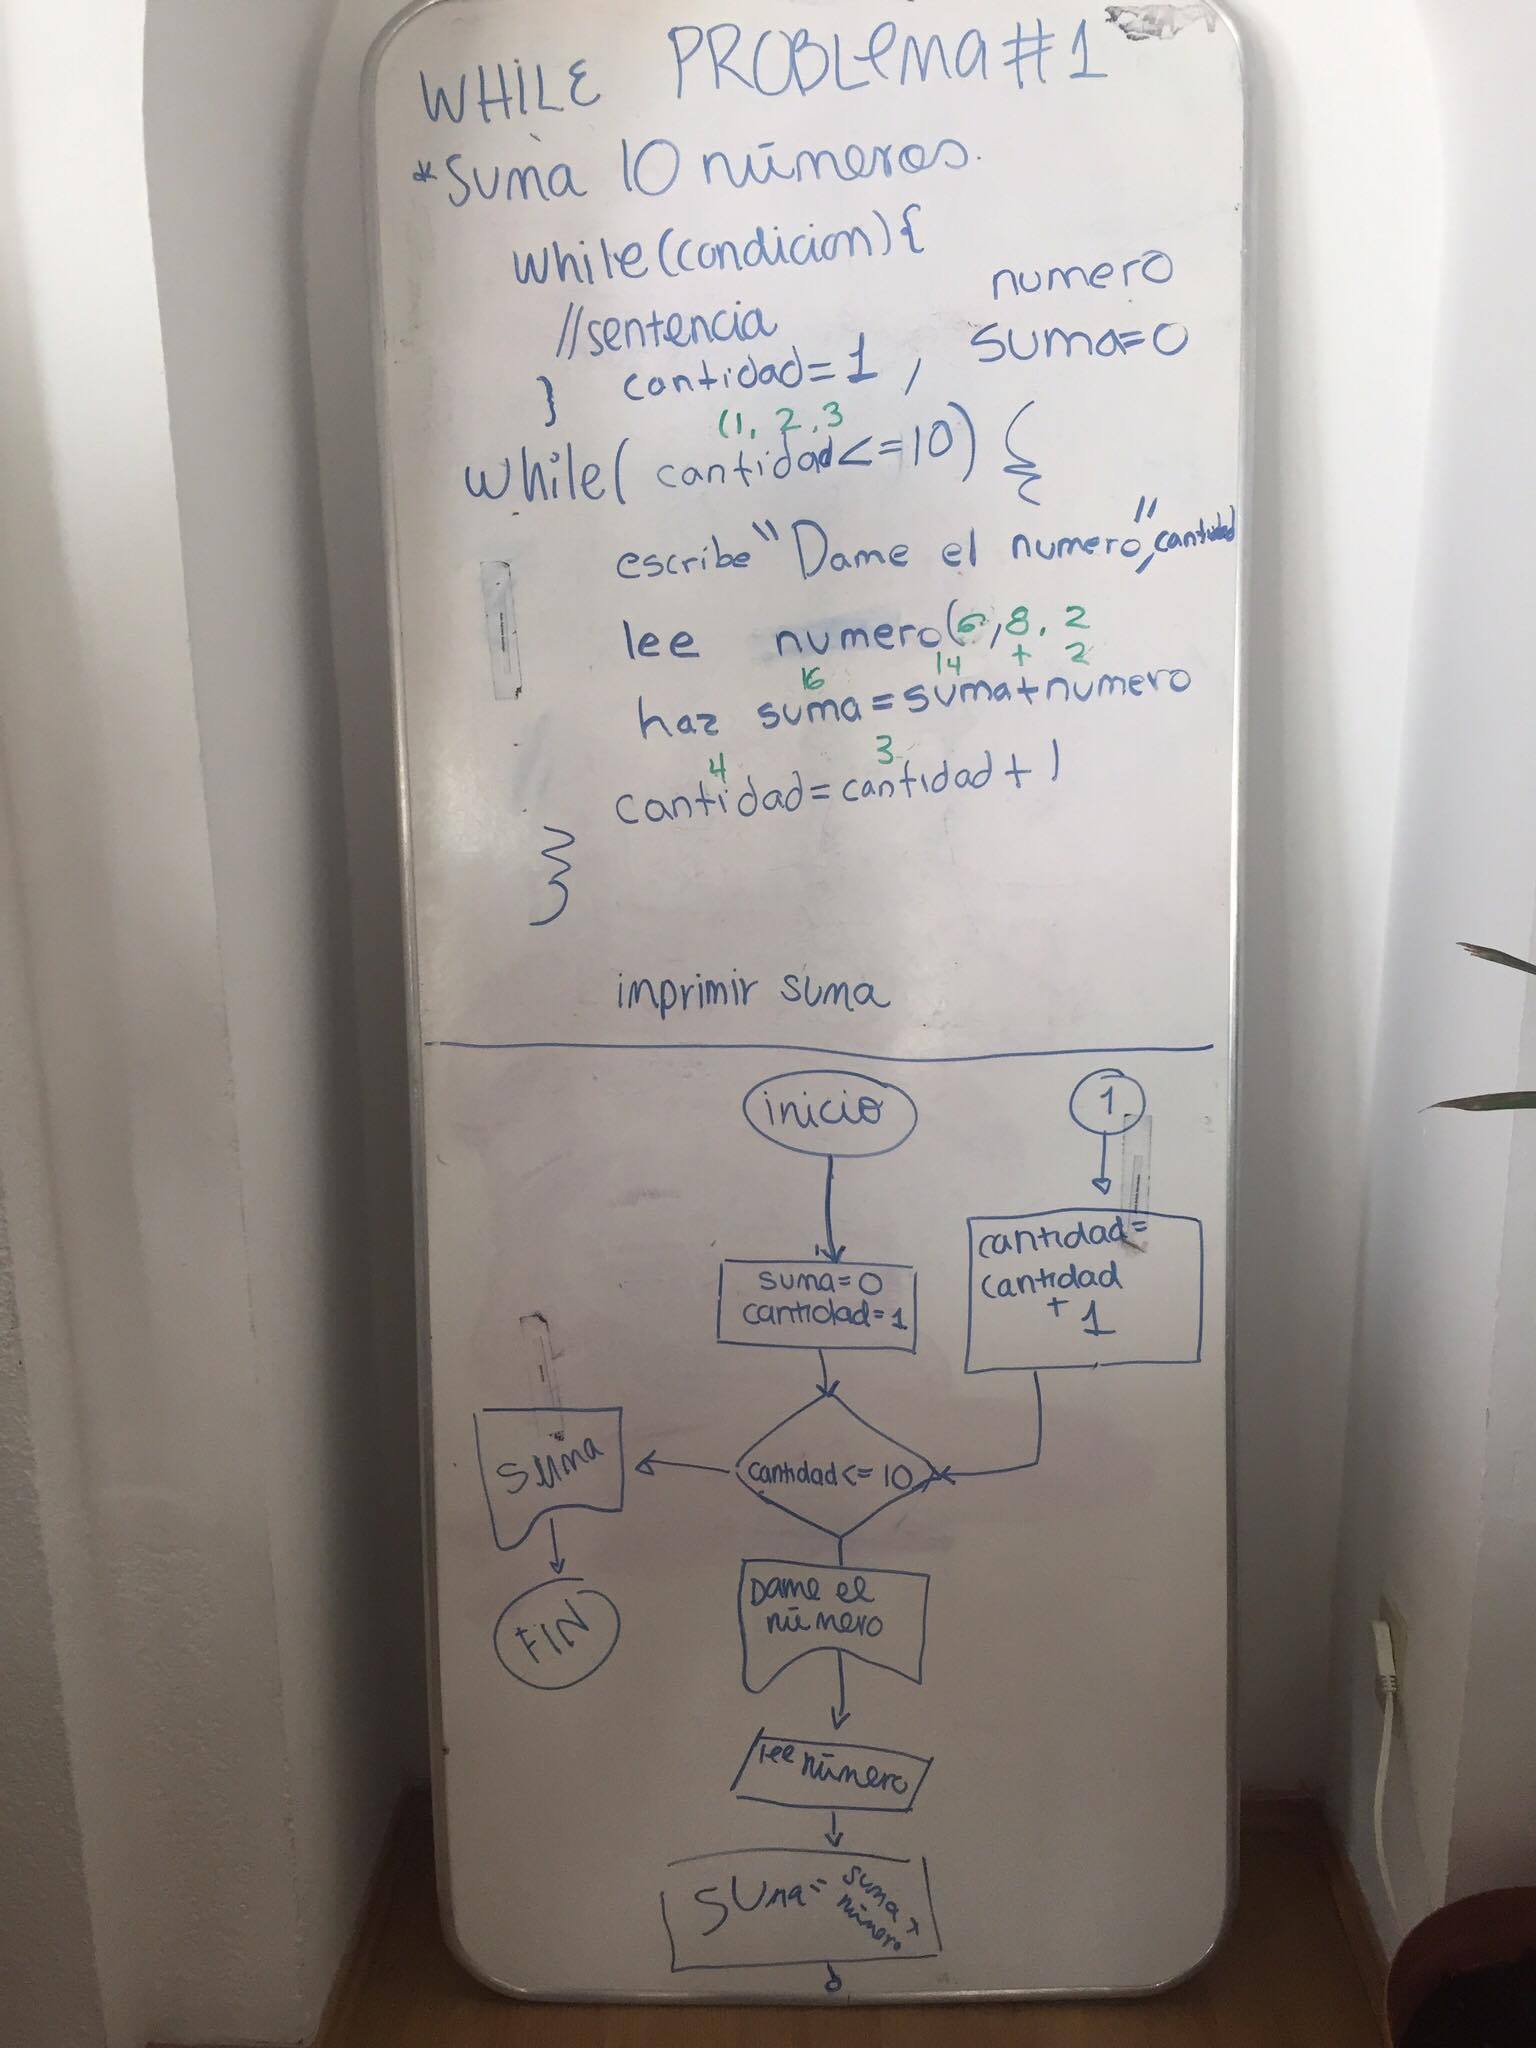 WHILE PROBLEMA #1
*Suma 10 números.
while(condicion){
//sentencia
}
numero
cantidad=1, suma=0
(1, 2, 3
while(cantidad<=10){
escribe "Dame el numero", cantidad
lee numero(6, 8, 2
16 14 + 2
haz suma=suma+numero
4 3
cantidad=cantidad+1
}
imprimir suma
inicio
suma=0
cantidad=1
cantidad<=10
suma
FIN
Dame el
número
lee número
suma= suma+
número
1
cantidad=
cantidad
+ 1